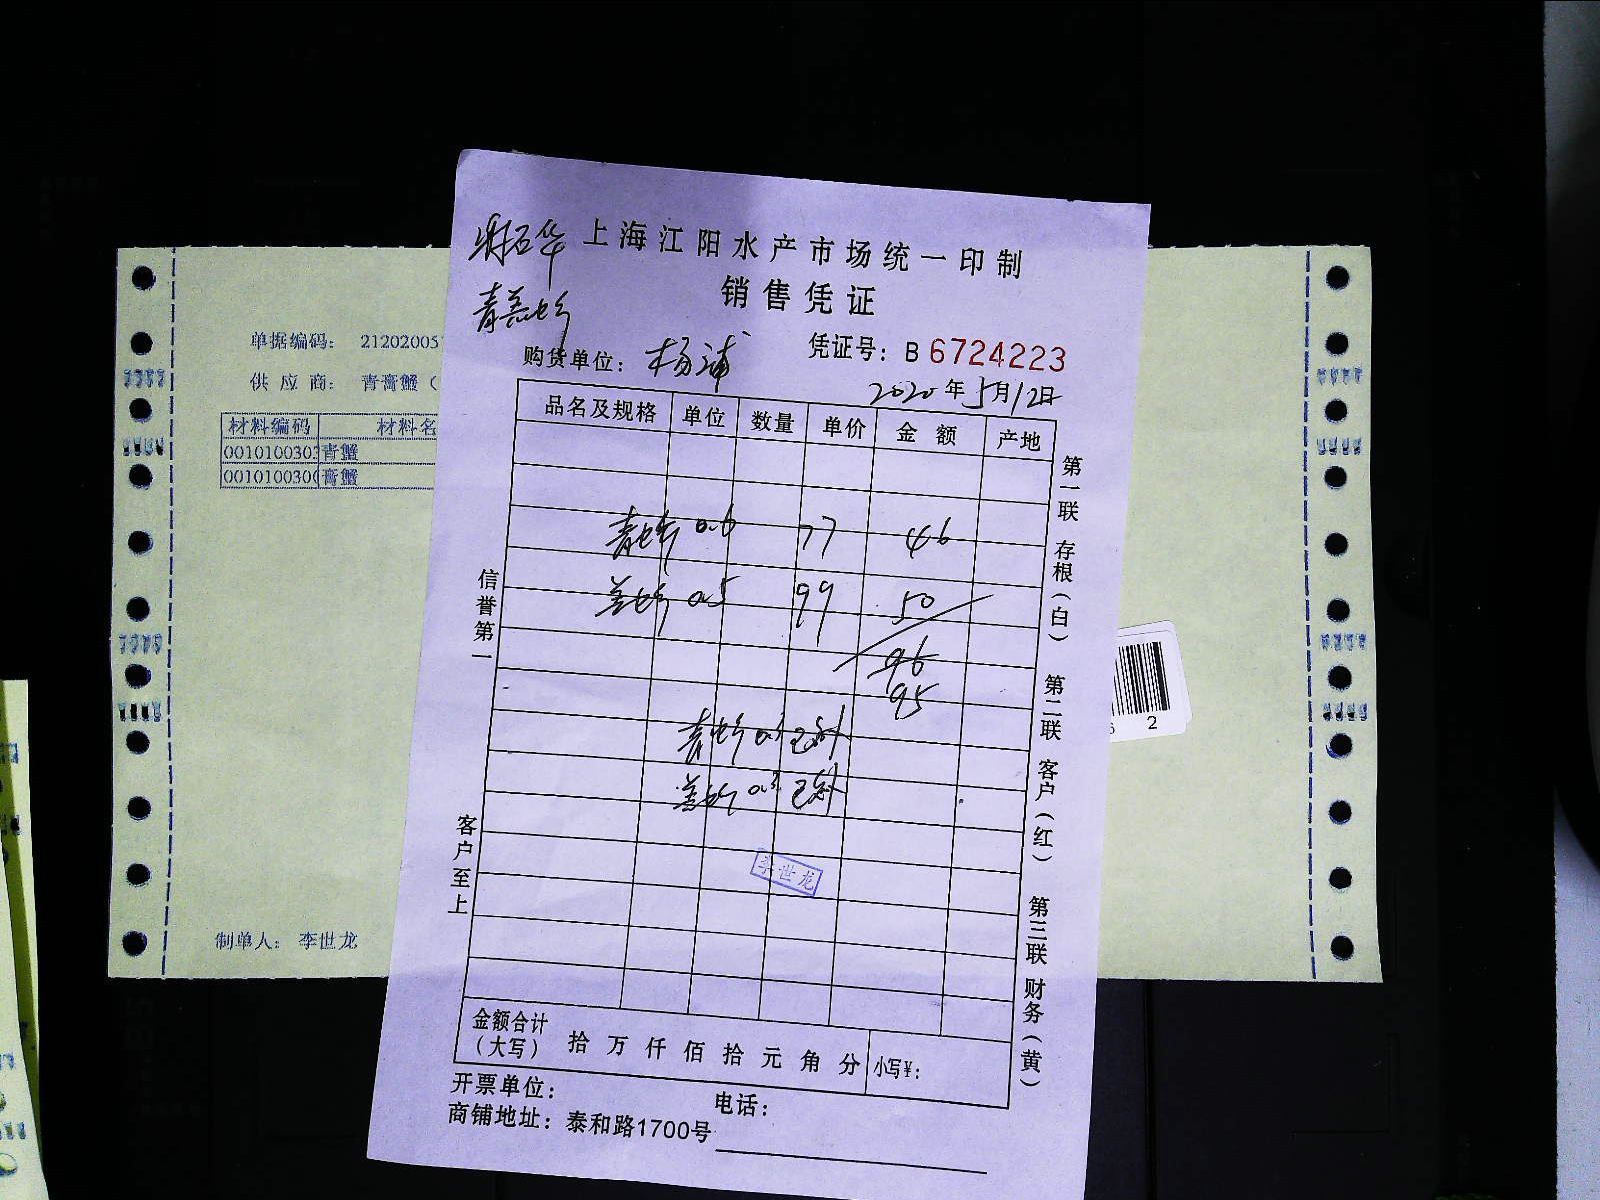 上海江阳水产市场统一印制
销售凭证
青膏蟹
购货单位： 杨浦
凭证号：B 6724223
2020年5月12日
品名及规格 单位 数量 单价 金额 产地
青蟹 0.6 77 46
膏蟹 0.5 99 50
96
95
青蟹
膏蟹 0.3
李世龙
金额合计
（大写） 拾 万 仟 佰 拾 元 角 分 小写¥：
开票单位： 电话：
商铺地址：泰和路1700号
信誉第一
客户至上
第一联 存根（白） 第二联 客户（红） 第三联 财务（黄）
单据编码： 21202005
供应商： 青膏蟹（
材料编码 材料名
0010100303 青蟹
001010030 膏蟹
制单人： 李世龙
2